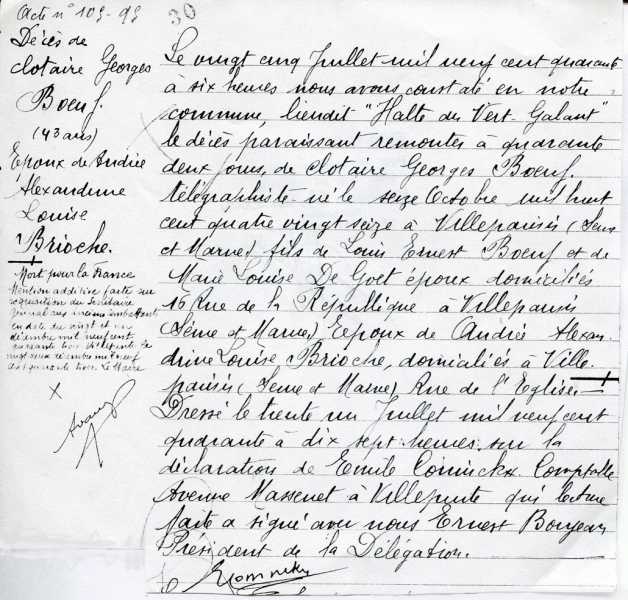 Acte n° 105-95
30
Décès de
Clotaire Georges
Boeuf.
(43 ans)
Epoux de Andrée
Alexandrine
Louise
Brioche.
Mort pour la France
Mention additive faite sur
réquisition du Secrétaire
Général aux anciens combattants
en date du vingt et un
décembre mil neuf cent
quarante trois. Villepinte le
vingt deux décembre mil neuf
cent quarante trois. Le Maire
Le vingt cinq Juillet mil neuf cent quarante
à six heures nous avons constaté en notre
commune, lieudit "Halte du Vert-Galant"
le décès paraissant remonter à quarante
deux jours, de Clotaire Georges Boeuf.
télégraphiste né le seize Octobre mil huit
cent quatre vingt seize à Villeparisis (Seine
et Marne) fils de Louis Ernest Boeuf et de
Marie Louise De Goet époux domiciliés
16 Rue de la République à Villeparisis
(Seine et Marne) Epoux de Andrée Alexan
drine Louise Brioche, domiciliés à Ville
parisis (Seine et Marne) Rue de l'Eglise
Dressé le trente un Juillet mil neuf cent
quarante à dix sept heures sur la
déclaration de Emile Cominckx Comptable
Avenue Massenet à Villepinte qui lecture
faite a signé avec nous Ernest Bonjean
Président de la Délégation.